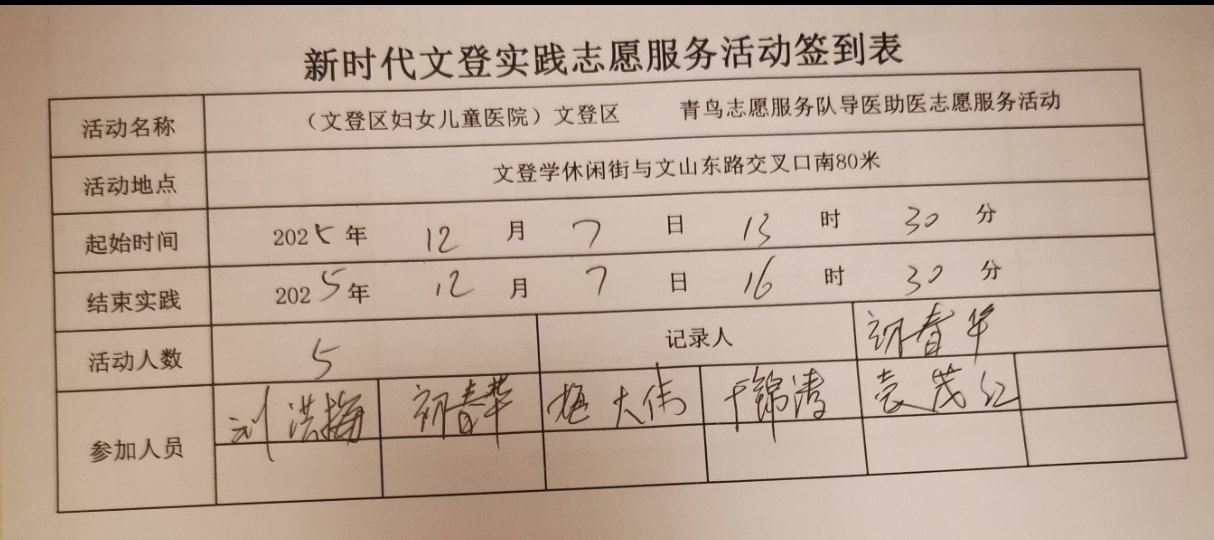 新时代文登实践志愿服务活动签到表
活动名称 （文登区妇女儿童医院）文登区 青鸟志愿服务队导医助医志愿服务活动
活动地点 文登学休闲街与文山东路交叉口南80米
起始时间 2025年 12 月 7 日 13 时 30 分
结束实践 2025年 12 月 7 日 16 时 30 分
活动人数 5 记录人 初春华
参加人员 刘洪梅 初春华 大伟 于锦涛 袁茂红